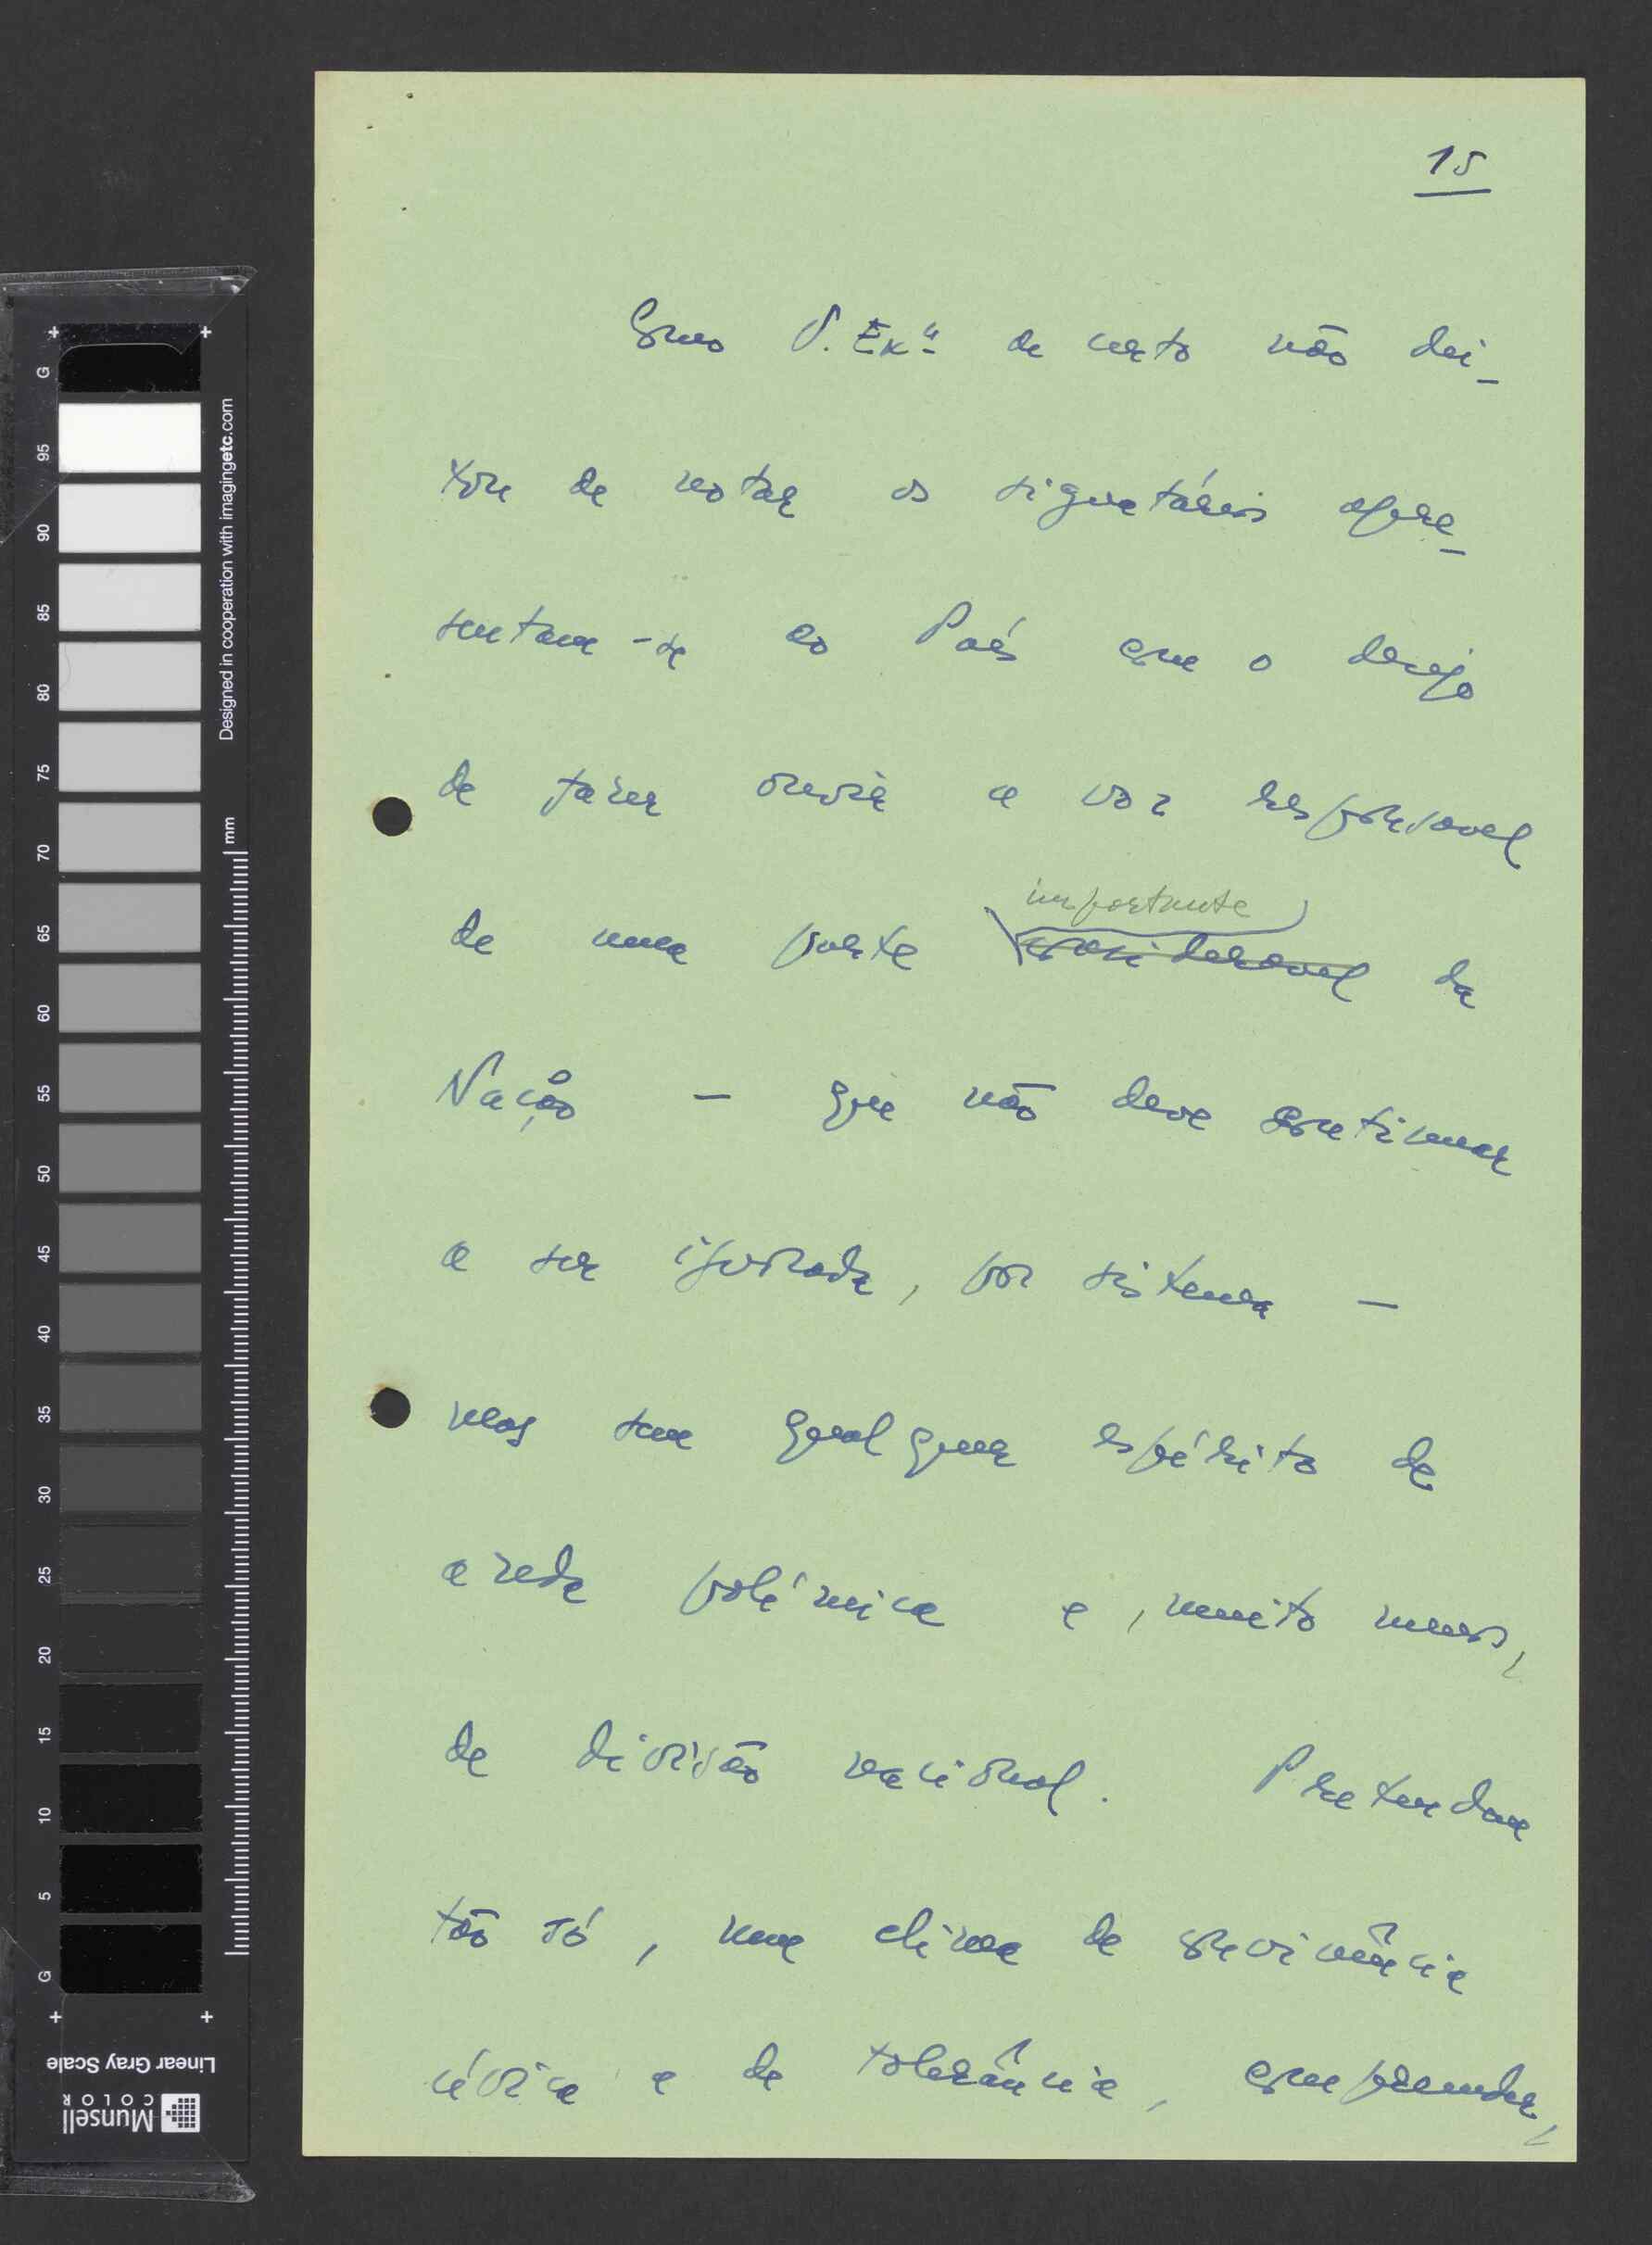 15
Como V. Exª de certo não dei-
xou de notar os signatários apre-
sentam-se ao País com o desejo
de fazer ouvir a voz responsavel
importante
de uma parte consideravel da
Nação — que não deve continuar
a ser ignorada, por sistema —
mas sem qualquer espírito de
azeda polémica e, muito menos,
de divisão nacional. Pretendem
tão só, num clima de convivência
cívica e de tolerância, compreender,
G 95 90 85 80 75 70 65 60 55 50 45 40 35 30 25 20 15 10 5 G
Designed in cooperation with imagingetc.com
mm
Linear Gray Scale
Munsell
COLOR